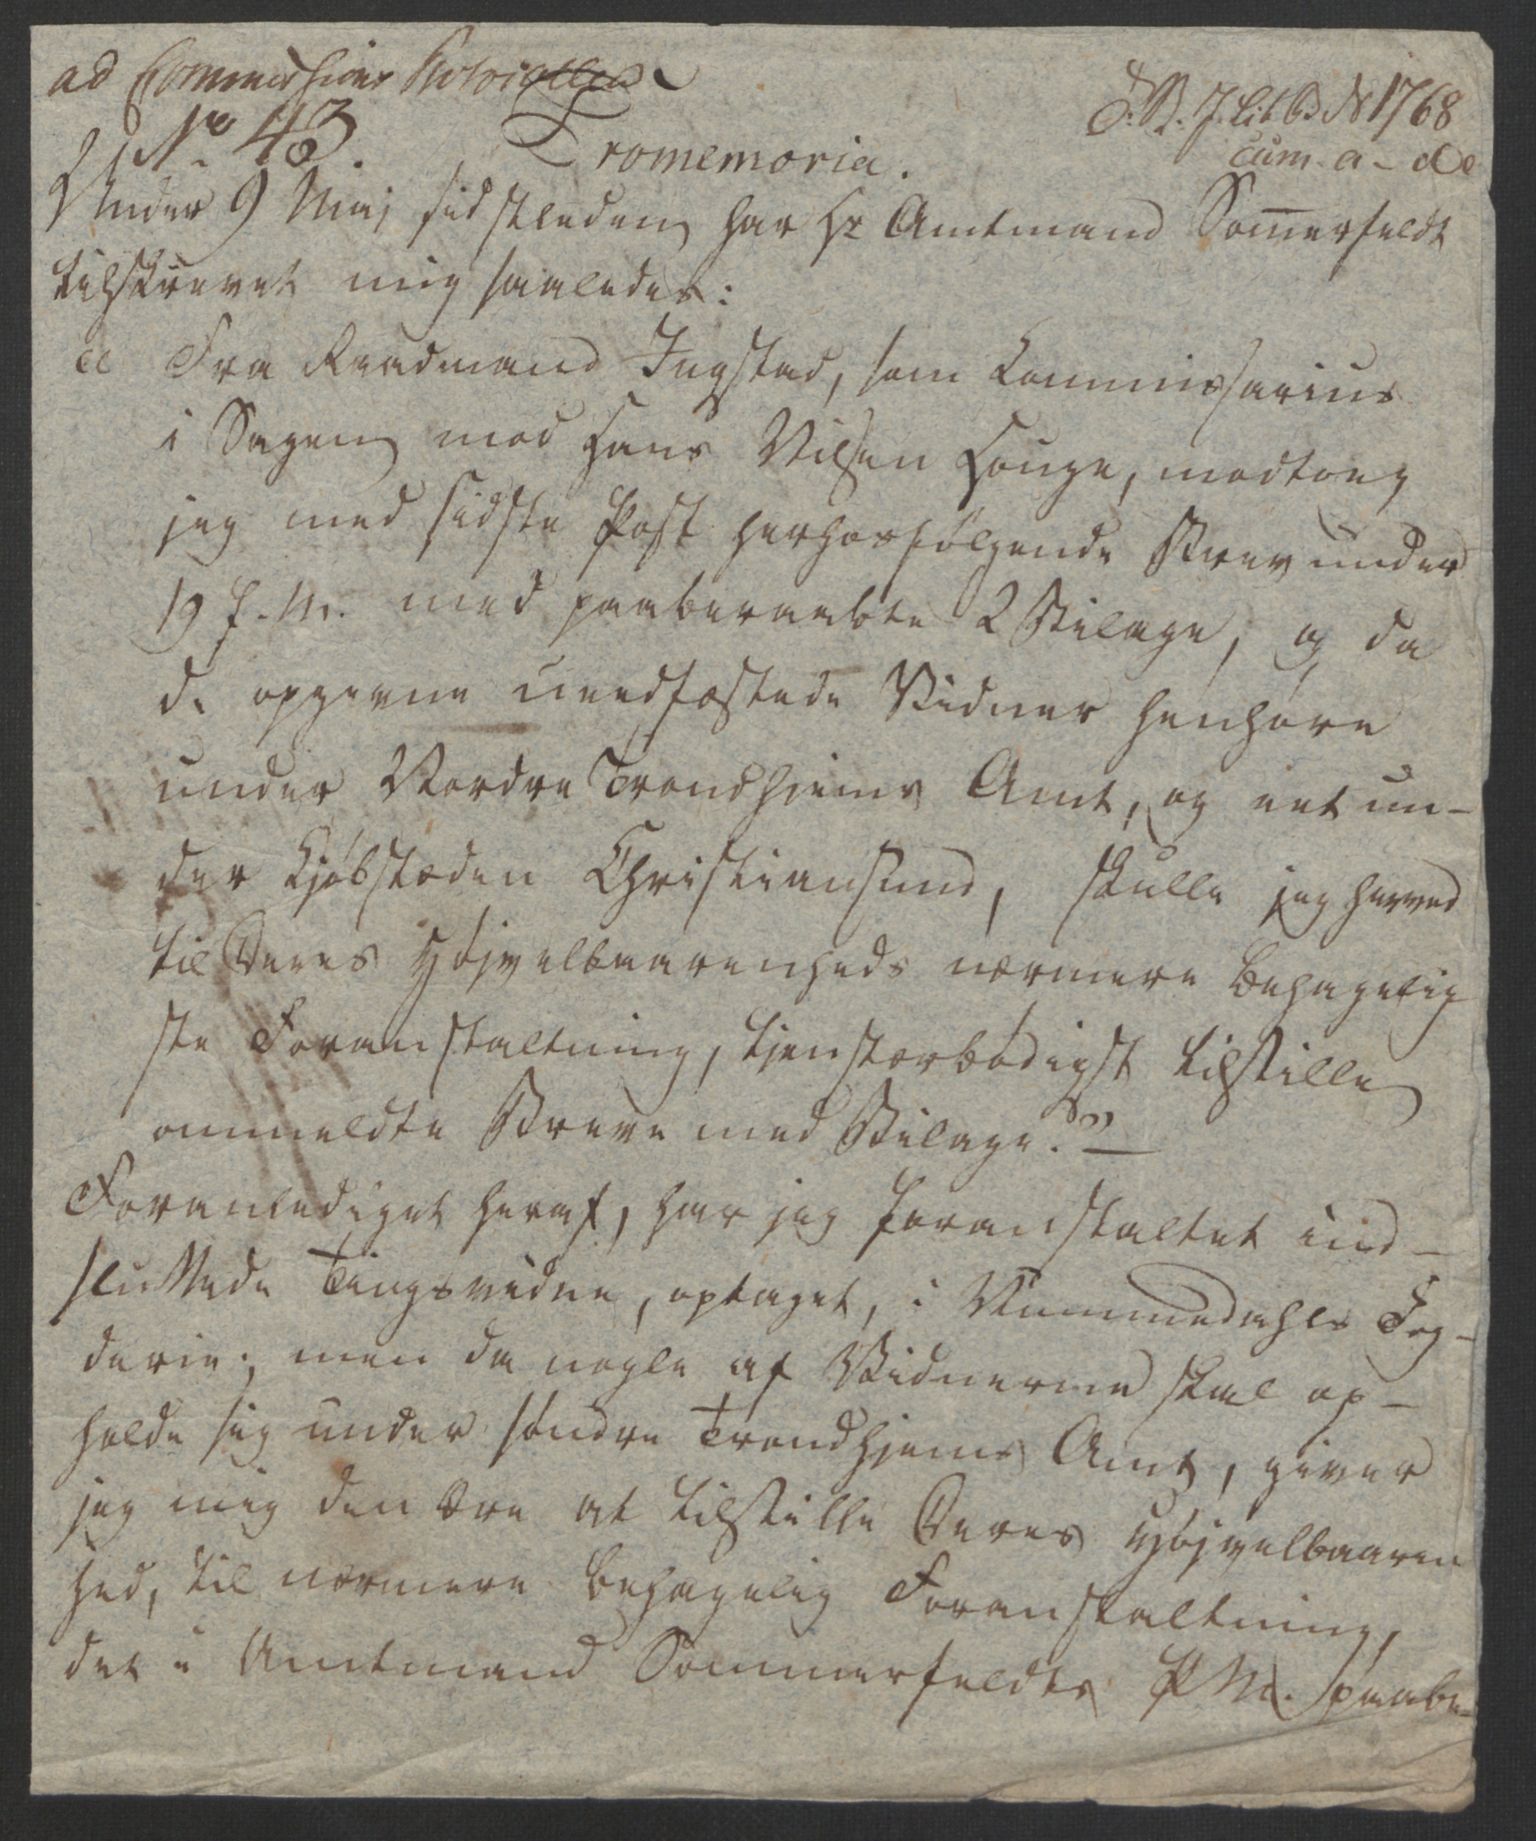 ad Commissions Protocollen
No 43.
T. B. J. Lit B No 1768
cum a - de
Promemoria.
Under 9 Maj sidstleden har Hr Amtmand Somerfeldt
tilskrevet mig saaledes:
" Fra Raadmand Ingstad, som Commissarius
i Sagen mod Hans Nilsen Houge, modtoeg
jeg med sidste Post herhosfølgende Brev under
19 f. M. med paaberaabte 2 Bilage, og da
de opgevne ueedfæstede Vidner henhøre
under Nordre Trondhjems Amt, og eet un-
der Kjøbstæden Christiansund, skulle jeg herved
til Deres Højvelbaarenheds nærmere behagelig
ste Foranstaltning, tjenstærbødigst tilstille
ommeldte Breve med Bilage." —
Foranlediget heraf, har jeg foranstaltet ind-
sluttede Tingsvidne, optaget, i Nummedahls Fog-
derie; men da nogle af Vidnerne skal op-
holde sig under søndre Trondhjems Amt, giver
jeg mig den Ære at tilstille Deres Højvelbaaren
hed, til nærmere behagelig Foranstaltning,
det i Amtmand Sommerfeldts P M. paabe-